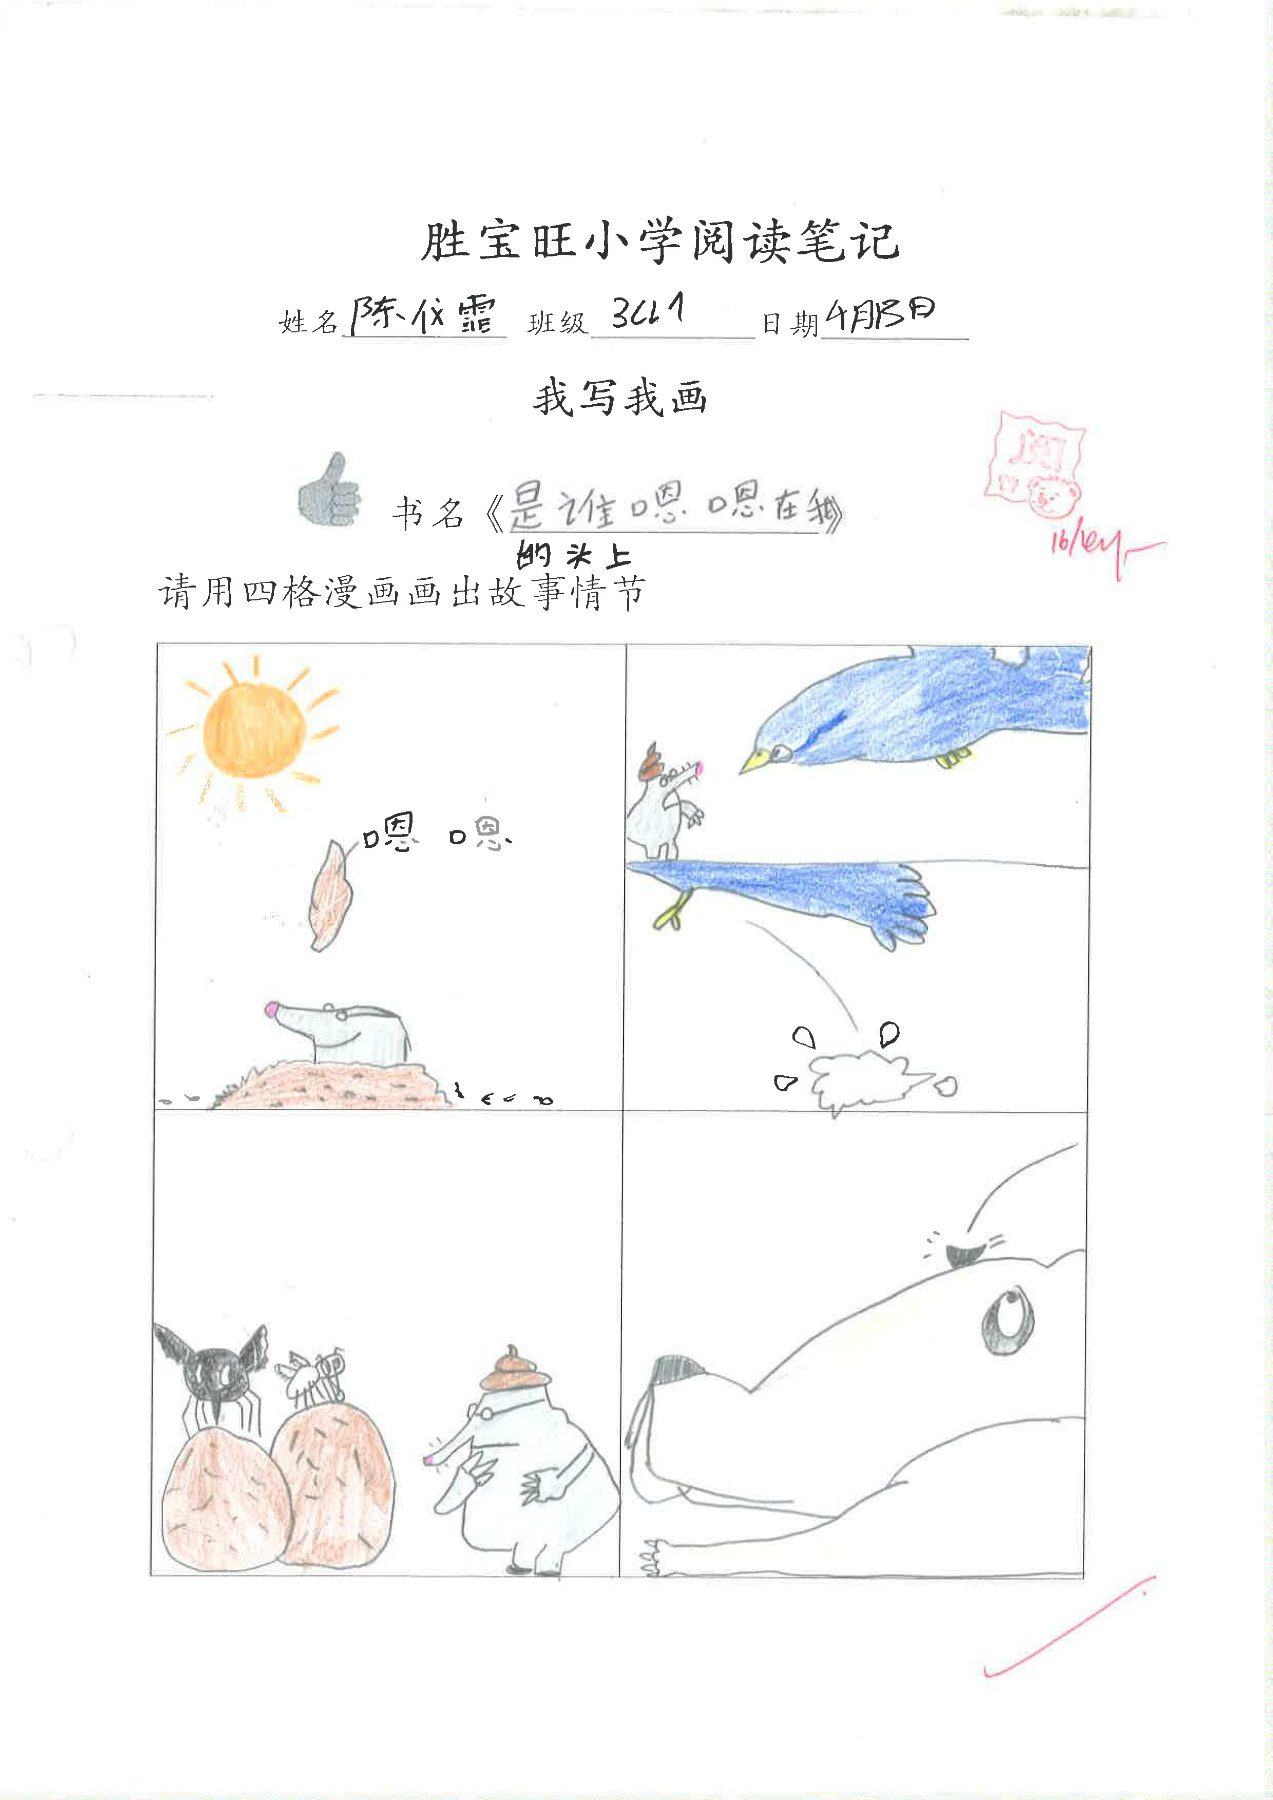 胜宝旺小学阅读笔记
姓名 陈仪霏 班级 3CL1 日期 4月13日
我写我画
阅
书名《是谁嗯嗯在我》
的头上
请用四格漫画画出故事情节
嗯 嗯